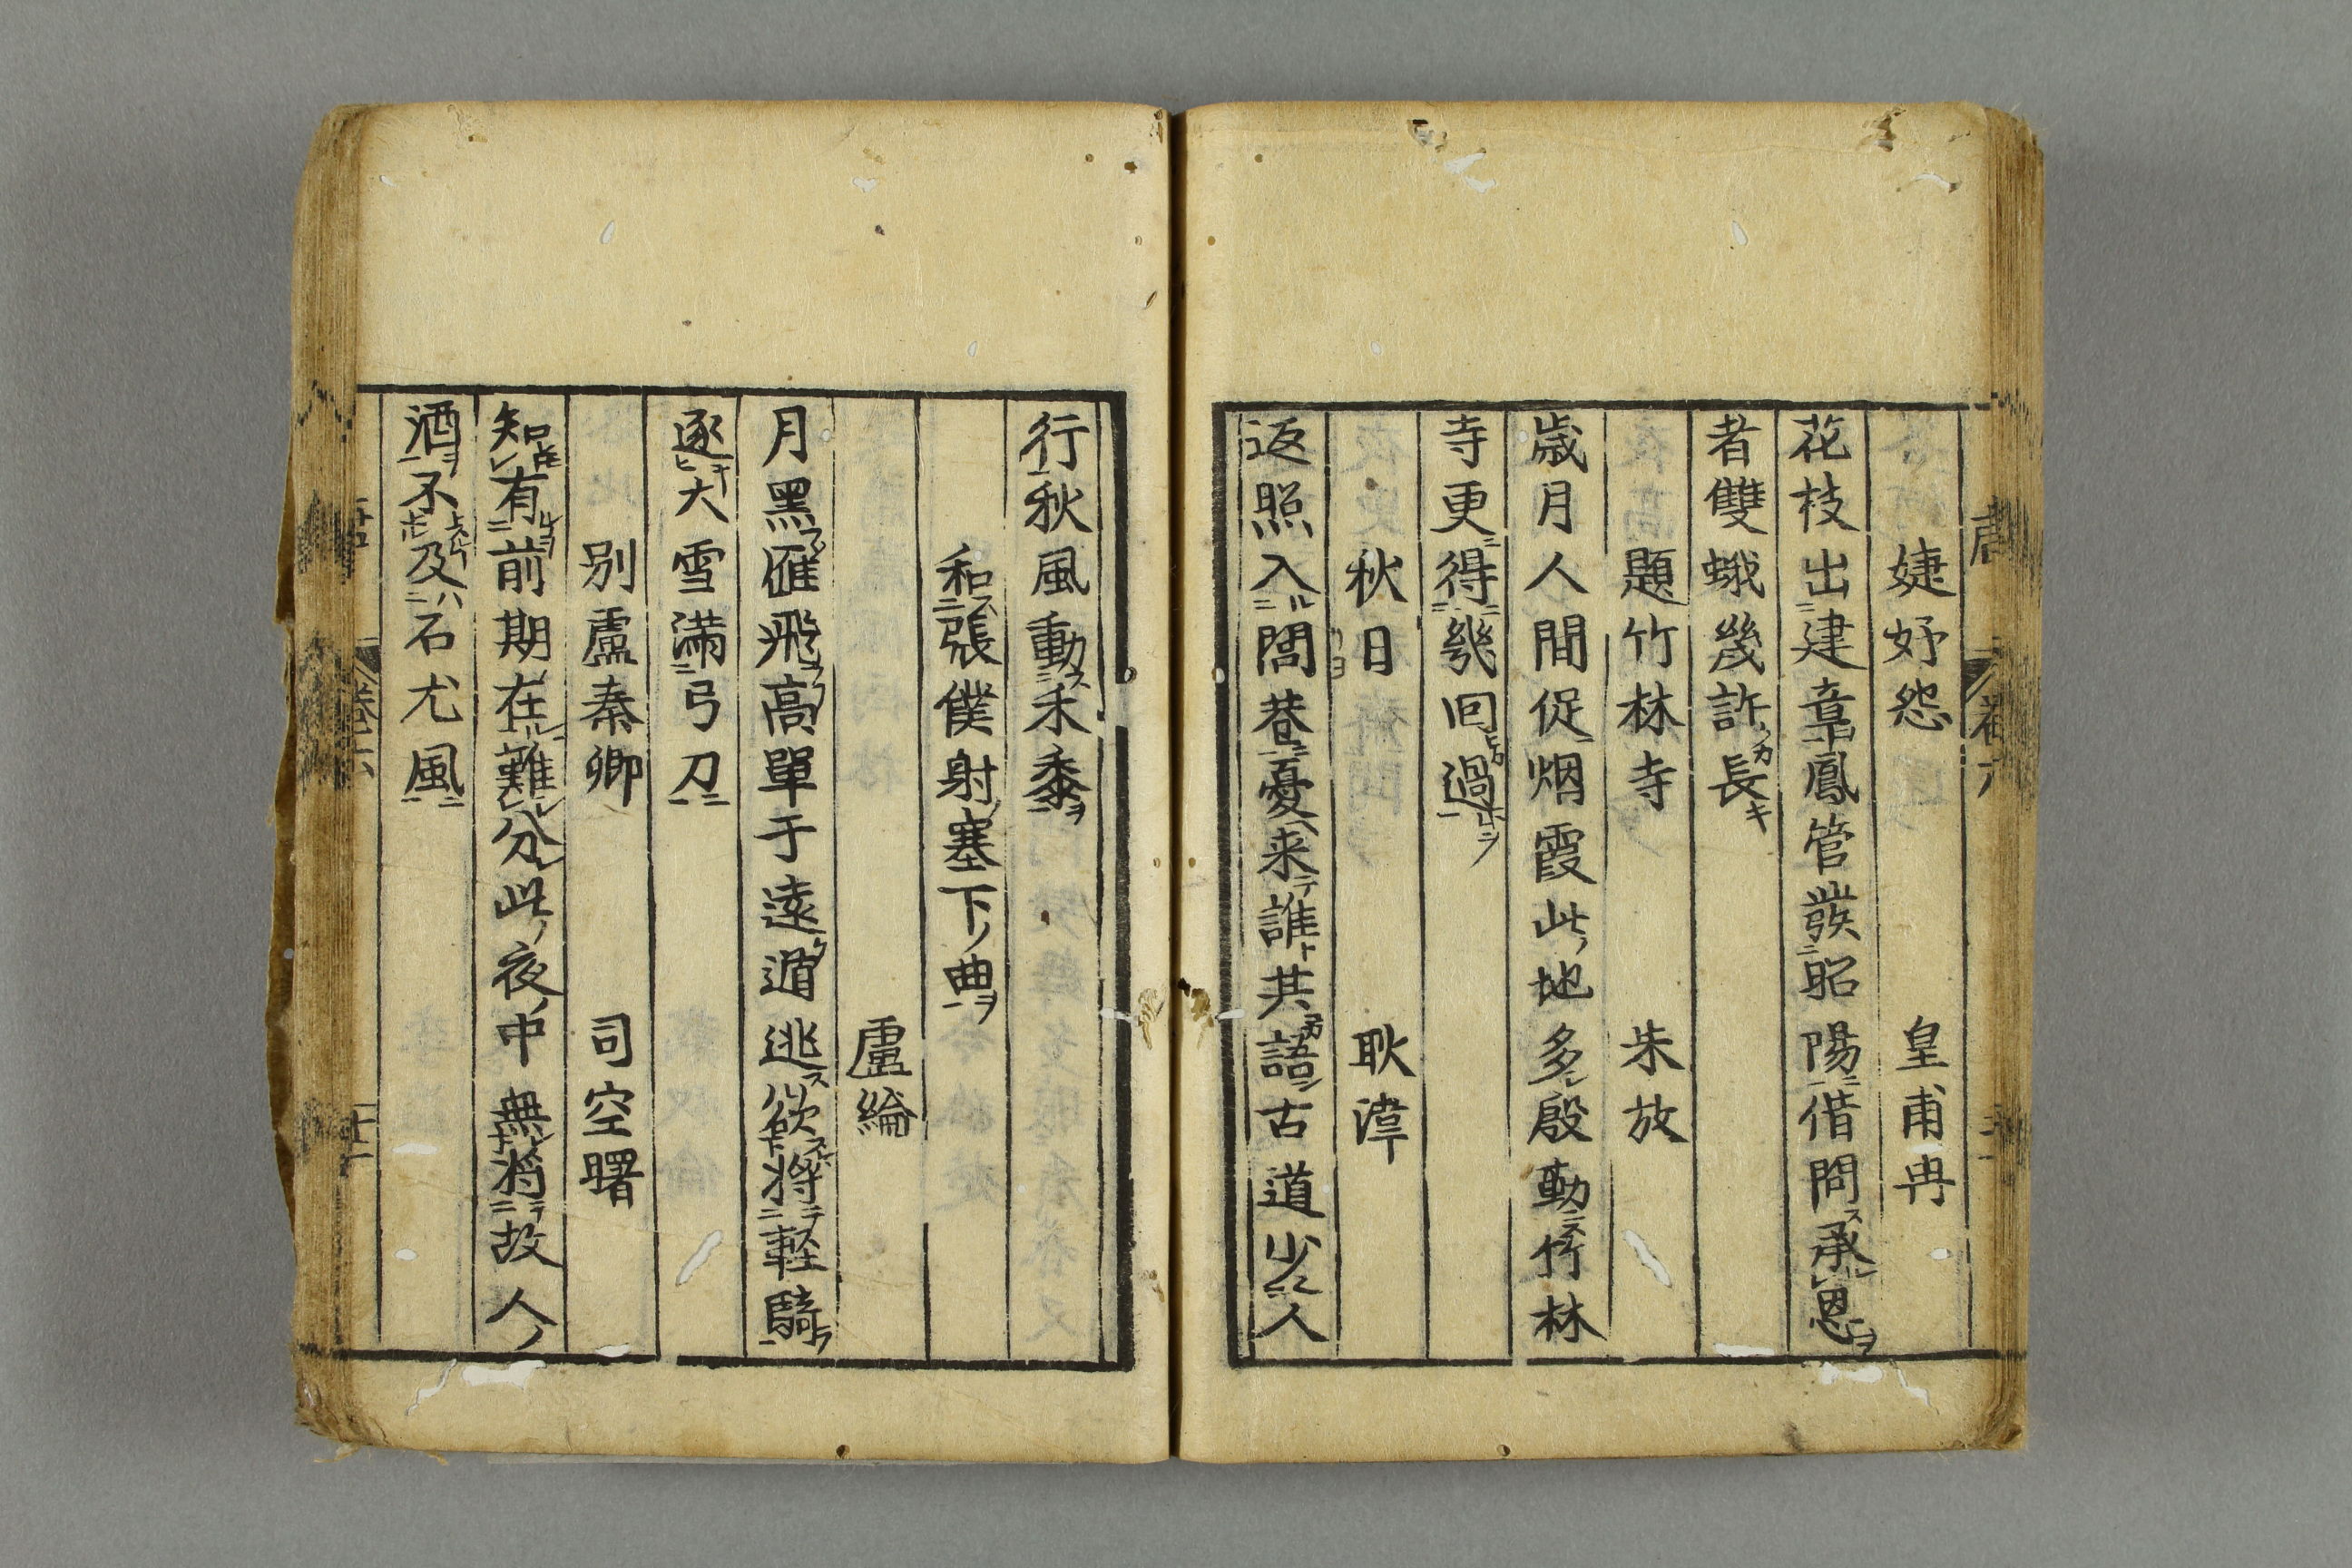 婕妤怨 皇甫冉
花枝出建章鳳管發昭陽借問承恩
者雙蛾幾許長
題竹林寺 朱放
歲月人間促烟霞此地多殷勤竹林
寺更得幾回過
秋日 耿湋
返照入閭巷憂来誰共語古道少人
行秋風動禾黍
和張僕射塞下曲
盧綸
月黑鴈飛高單于遠遁逃欲將輕騎
逐大雪滿弓刀
別盧秦卿 司空曙
知有前期在難分此夜中無將故人
酒不及石尤風